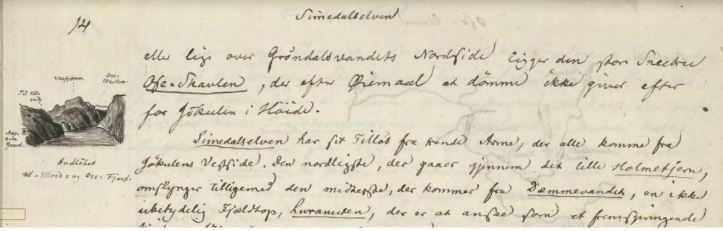 14
Simedalselven
elle lige over Gröndalsvandets Nordside ligger den store Sneebræ
Ose=Skavlen, der efter Øiemaal at dömme ikke giver efter
for Jökulen i Höide.
Simedalselven har sit Tillös fra trende Arne, der alle komme fra
Jökulens Vestside. Den nordligste, der gaaer gjennem det lille Holmetjern,
omslynger tilligemed den midterste, der kommer fra Dæmmevandet, en ikke
ubetydelig Fjeldtop, Luranuten, der er at ansee som et fremspringende
Vasfjæren.
Ose=
Skavlen.
Til Ul-
vik
Gaard.
Indlöbet
til
og Ose=Fjord